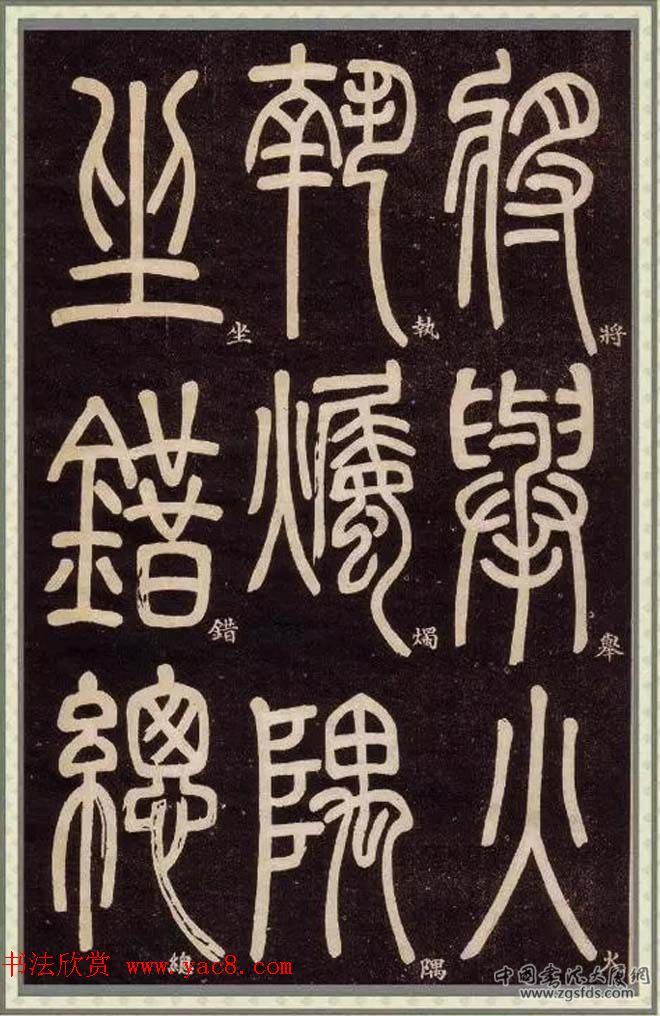 將舉火
執燭隅
坐錯總
將
舉
火
執
燭
隅
坐
錯
總
书法欣赏 www.yac8.com
中国书法大厦网
www.zgsfds.com